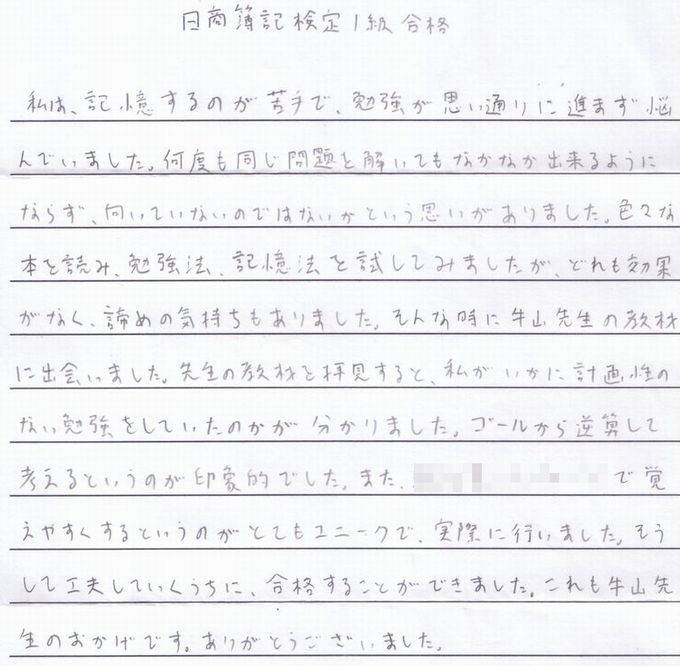 日商簿記検定1級合格
私は、記憶するのが苦手で、勉強が思い通りに進まず悩
んでいました。何度も同じ問題を解いてもなかなか出来るように
ならず、向いていないのではないかという思いがありました。色々な
本を読み、勉強法、記憶法を試してみましたが、どれも効果
がなく、諦めの気持ちもありました。そんな時に牛山先生の教材
に出会いました。先生の教材を拝見すると、私がいかに計画性の
ない勉強をしていたのかが分かりました。ゴールから逆算して
考えるというのが印象的でした。また、で覚
えやすくするというのがとてもユニークで、実際に行いました。そう
して工夫していくうちに、合格することができました。これも牛山先
生のおかげです。ありがとうございました。